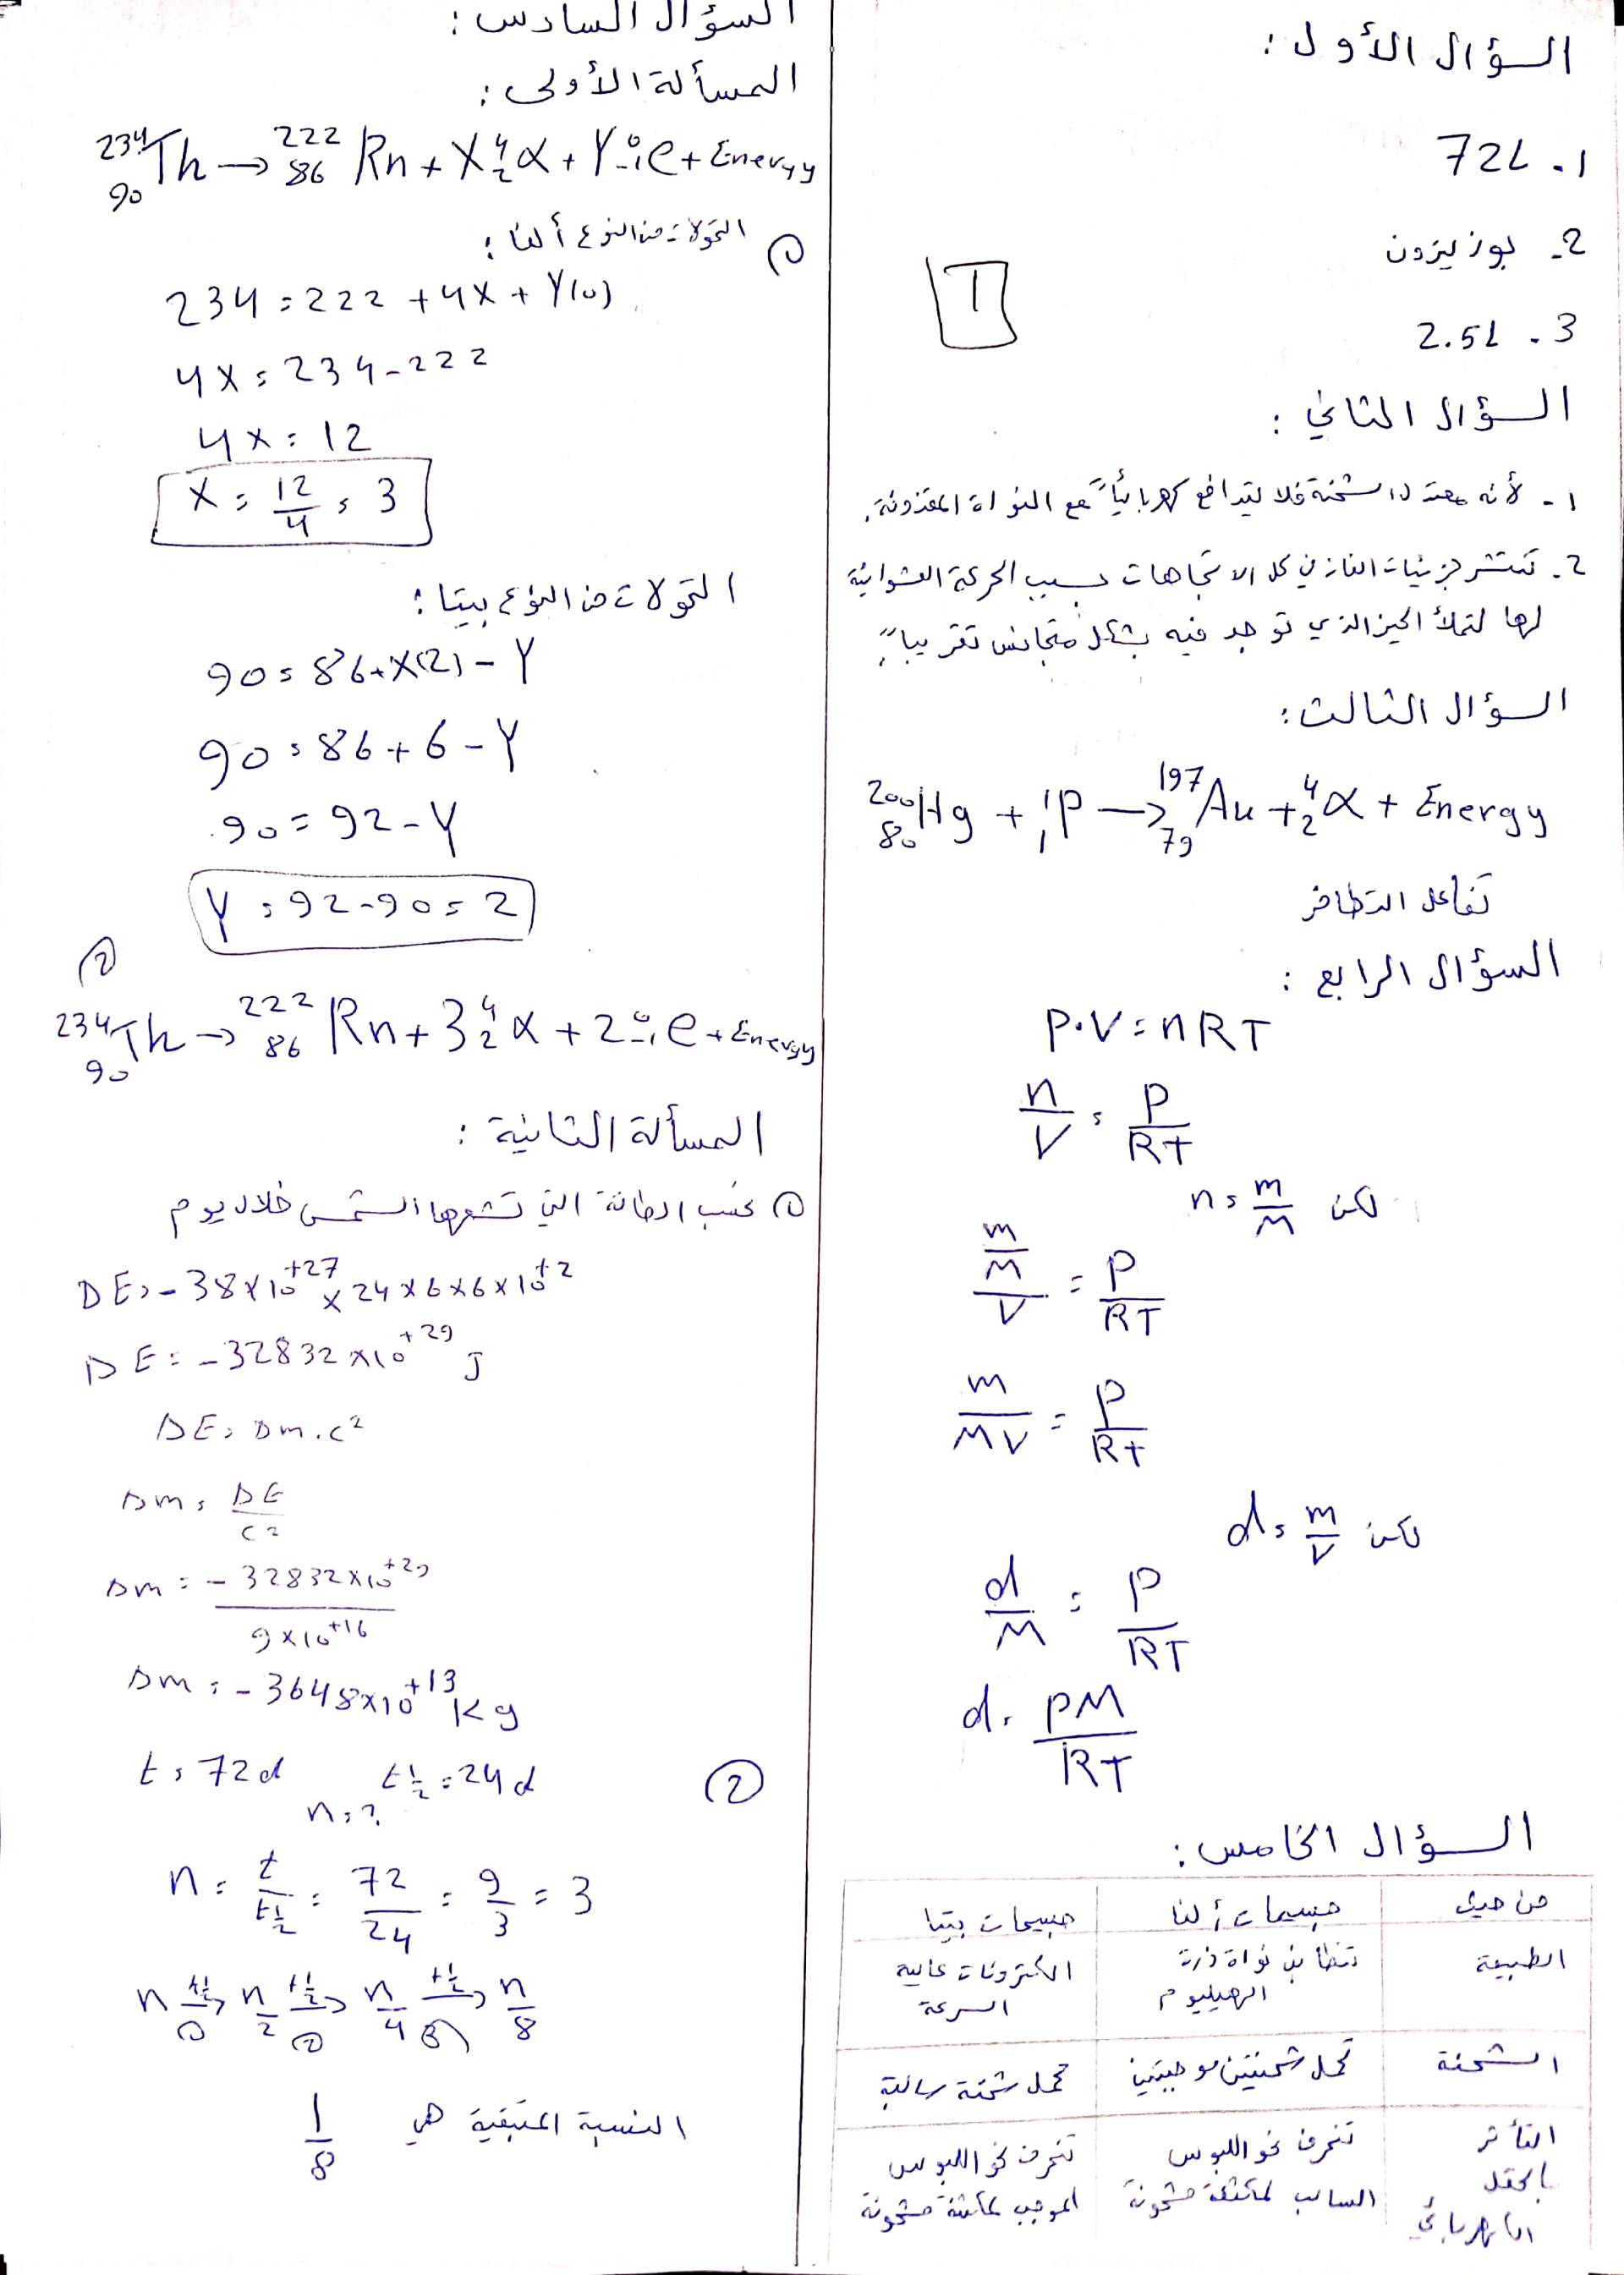 السؤال الأول :
1. 72L
2- بوزيترون
3. 2.5L
1
السؤال الثاني :
1- لأنه معتدل الشحنة فلا يتدافع كهربائياً مع النواة المقذوفة.
2. تنتشر جزيئات الغاز في كل الاتجاهات بسبب الحركة العشوائية
لها لتملأ الحيز الذي توجد فيه بشكل متجانس تقريباً.
السؤال الثالث :
²⁰⁰₈₀Hg + ¹₁P → ¹⁹⁷₇₉Au + ⁴₂α + Energy
تفاعل التطافر
السؤال الرابع :
P.V = nRT
n/V = P/RT
لكن n = m/M
(m/M)/V = P/RT
m/MV = P/RT
لكن d = m/V
d/M = P/RT
d = PM/RT
السؤال الخامس :
من حيث جسيمات ألفا جسيمات بيتا
الطبيعة تطابق نواة ذرة الهيليوم الكترونات عالية السرعة
الشحنة تحمل شحنتين موجبتين تحمل شحنة سالبة
التأثر بالحقل الكهربائي تنحرف نحو اللبوس السالب لمكثفة مشحونة تنحرف نحو اللبوس الموجب لمكثفة مشحونة
السؤال السادس :
المسألة الأولى :
²³⁴₉₀Th → ²²²₈₆Rn + X⁴₂α + Y⁰₋₁e + Energy
① التحولات من النوع ألفا :
234 = 222 + 4X + Y(0)
4X = 234 - 222
4X = 12
X = 12/4 = 3
التحولات من النوع بيتا :
90 = 86 + X(2) - Y
90 = 86 + 6 - Y
90 = 92 - Y
Y = 92 - 90 = 2
②
²³⁴₉₀Th → ²²²₈₆Rn + 3⁴₂α + 2⁰₋₁e + Energy
المسألة الثانية :
① نحسب الطاقة التي تشعها الشمس خلال يوم
ΔE = -38×10⁺²⁷ × 24×6×6×10⁺²
ΔE = -32832×10⁺²⁹ J
ΔE = Δm.c²
Δm = ΔE/c²
Δm = -32832×10⁺²⁹/9×10⁺¹⁶
Δm = -3648×10⁺¹³ Kg
② t = 72d t½ = 24d
n = ?
n = t/t½ = 72/24 = 9/3 = 3
n →(t½ ①) n/2 →(t½ ②) n/4 →(t½ ③) n/8
النسبة المتبقية هي 1/8